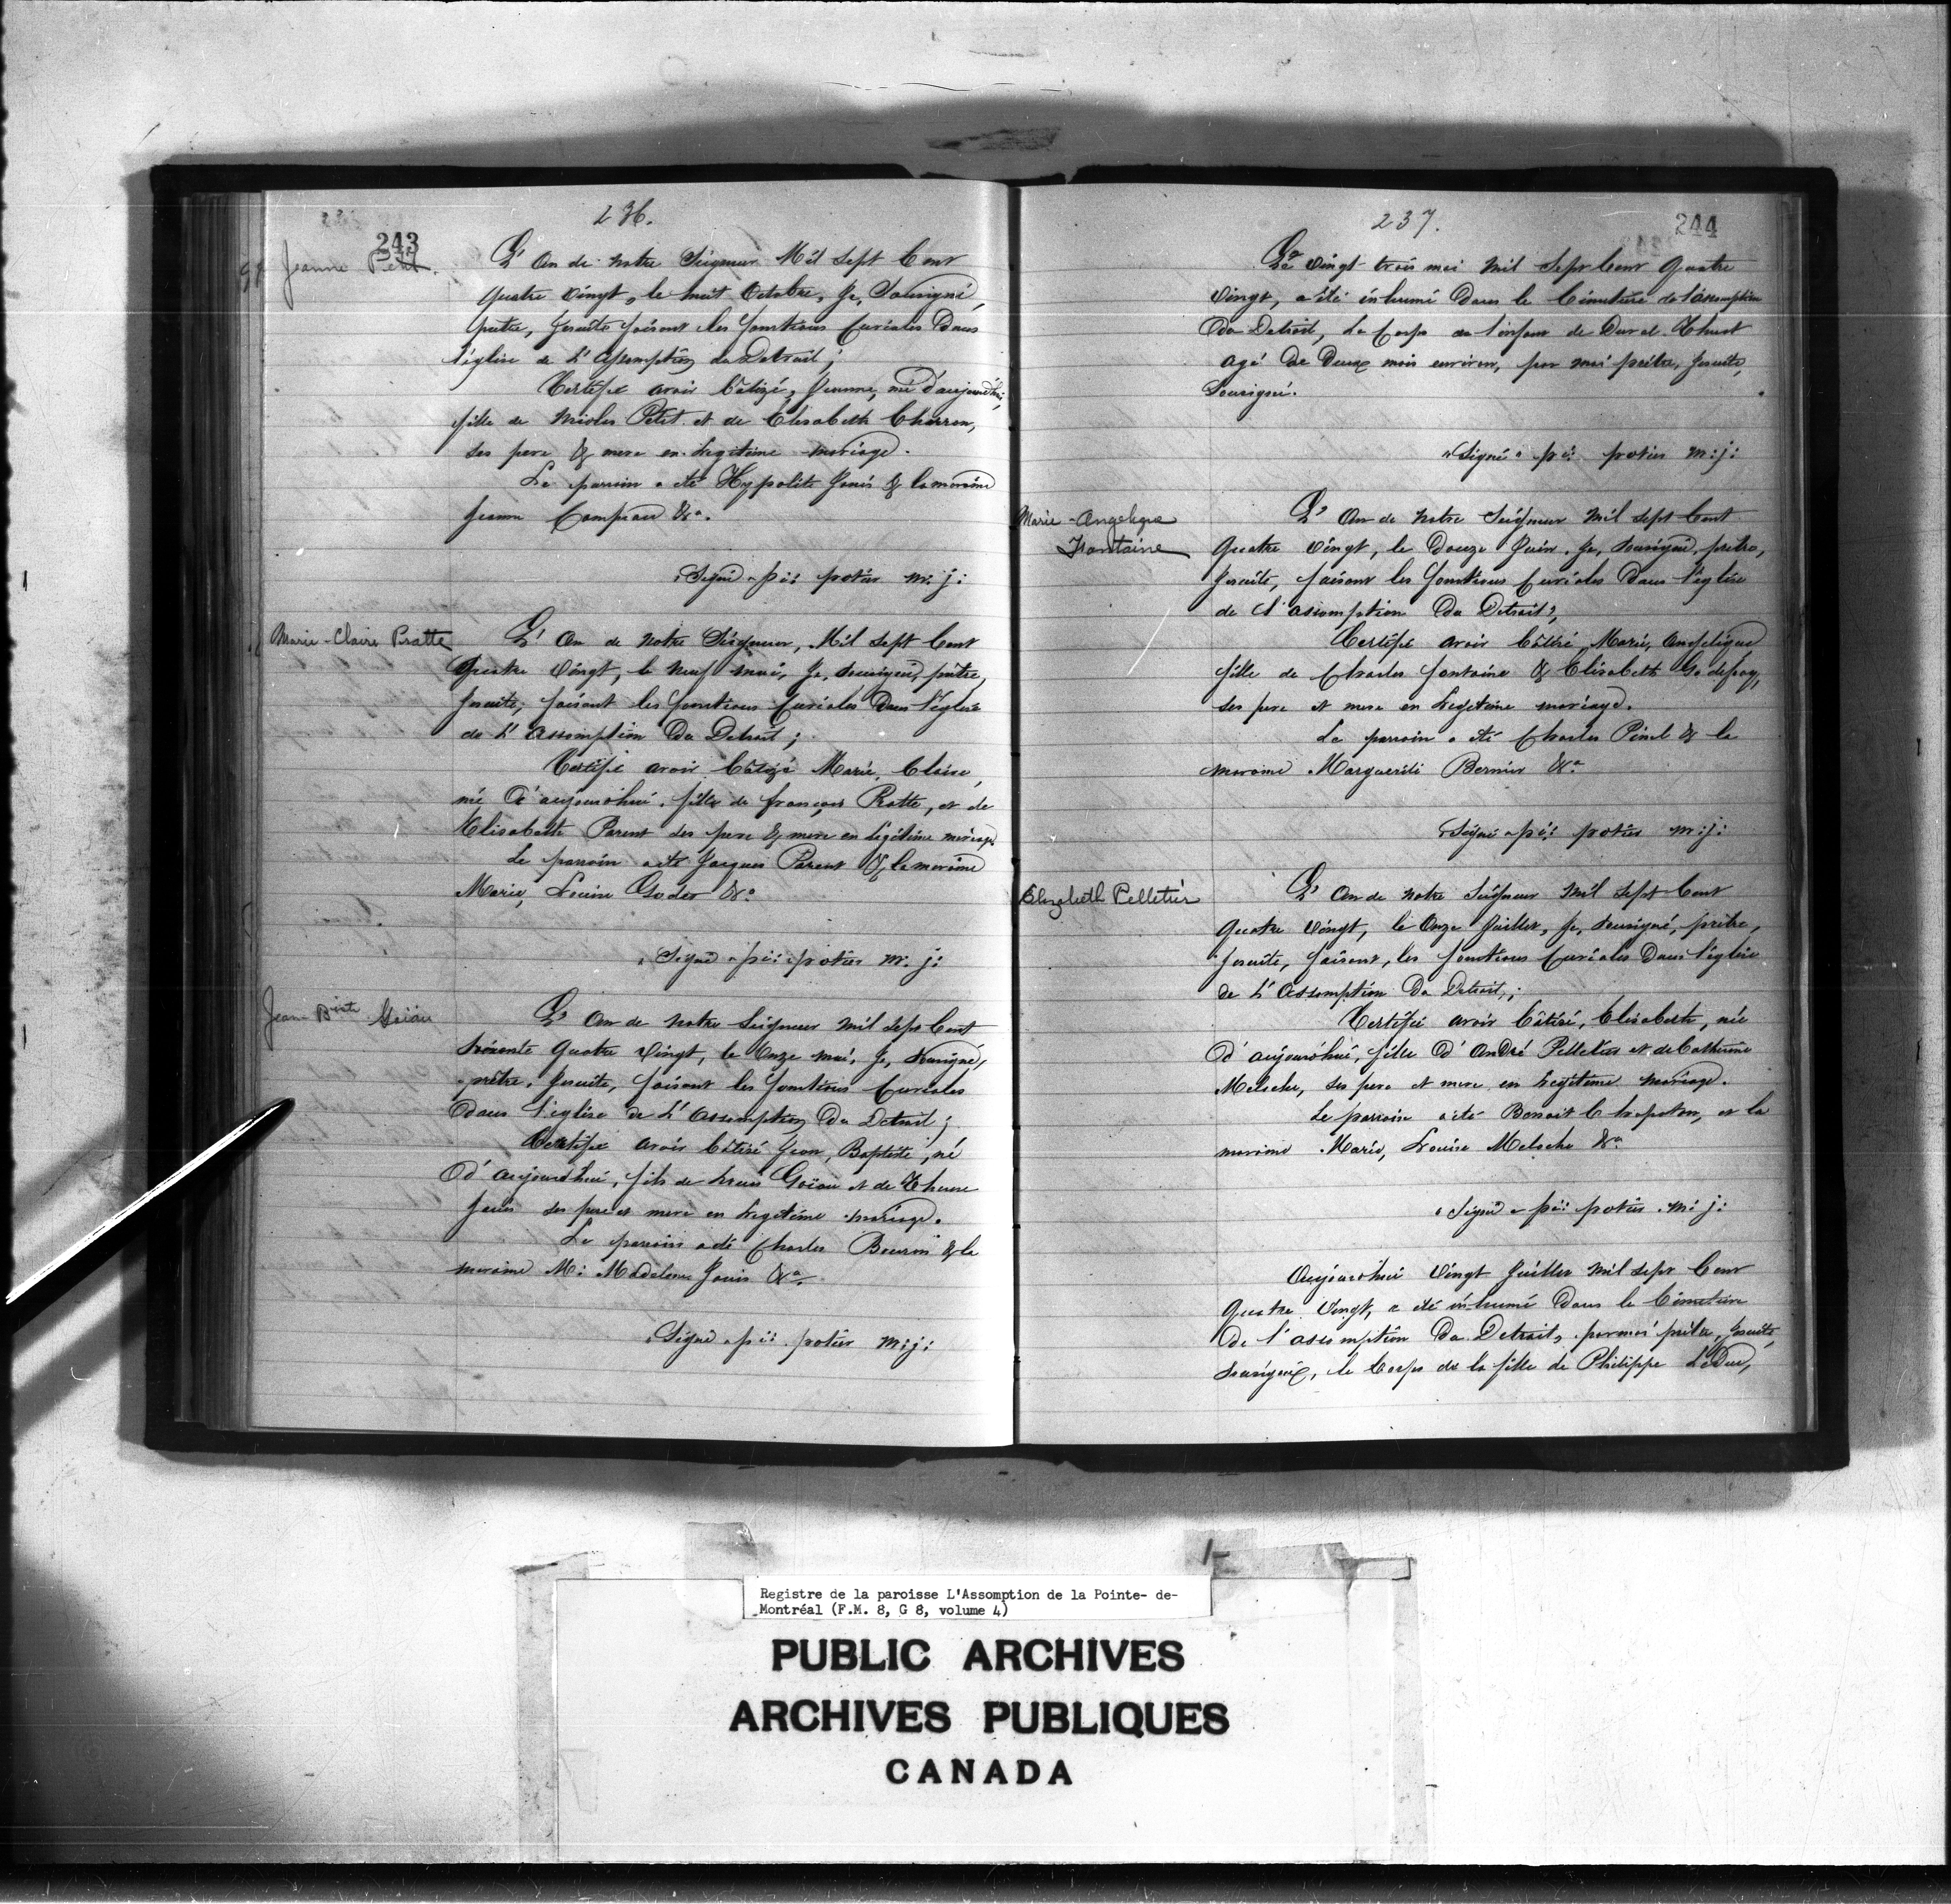 236.
243
Jeanne Petit.
L' An de notre Seigneur Mil Sept Cent
quatre Vingt, le huit Octobre, Je, Sousigné,
prêtre, Jesuite faisant les fonctions Curiales Dans
l'église de L' Assomption du Detroit;
Certifie avoir bâtizé, Jeanne, née d'aujourdhui,
fille de Nicolas Petit et de Elisabeth Charron,
ses pere & mere en legitime mariage.
Le parrain a eté Hypolite Janis & la maraine
Jeanne Campeau &a.
"Signé" pi: potier m: j:
Marie-Claire Pratte
L' An de notre Seigneur, Mil Sept Cent
Quatre Vingt, le neuf mai, Je, Sousigné, prêtre,
Jesuite, faisant les fonctions Curiales Dans l'église
de L' Assomption Du Detroit;
Certifie avoir bâtizé Marie, Claire,
née d'aujourdhui, fille de françois Pratte, et de
Elisabeth Parent ses pere & mere en legitime mariage.
Le parrain a eté Jacques Parent & la maraine
Marie, Louise Godet &a
"Signé" pi: potier m: j:
Jean Bte Goiau
L' An de notre Seigneur mil Sept Cent
quatre Vingt, le Onze mai, Je, Sousigné,
prêtre, Jesuite, faisant les fonctions Curiales
dans l'église de L' Assomption Du Detroit;
Certifie avoir bâtisé Jean, Baptiste, né
d'aujourdhui, fils de Louis Goiau et de Therese
Janis ses pere et mere en legitime mariage.
Le parrain a été Charles Bouron & la
maraine M: Madeleine Janis &a
"Signé" pi: potier m: j:
237.
244
Le Vingt trois mai mil Sept Cent Quatre
Vingt, a été inhumé Dans le Cimetière de l'assomption
Du Detroit, Le Corps de l'enfant de
agé De Deux mois environ, par moi prêtre, Jesuite,
Sousigné.
"Signé" pi: potier m: j:
Marie-Angelique
Fontaine
L' An de notre Seigneur mil Sept Cent
Quatre Vingt, le Douze Juin, Je, Sousigné, prêtre,
Jesuite, faisant les fonctions Curiales Dans l'église
de L' assomption Du Detroit;
Certifie avoir bâtisé, Marie, Angelique
fille de Charles fontaine & Elisabeth Godefroy,
ses pere et mere en legitime mariage.
Le parrain a eté Charles Pinel & la
maraine Marguerite Bernier &a
"Signé" pi: potier m: j:
Elizabeth Pelletier
L' An de notre Seigneur mil Sept Cent
Quatre Vingt, le Onze Juillet, Je, Sousigné, prêtre,
Jesuite, faisant, les fonctions Curiales Dans l'église
de L' Assomption Du Detroit;
Certifie avoir bâtisé, Elisabeth, née
D' aujourdhui, fille D' André Pelletier et de Catherine
Meloche, ses pere et mere en legitime mariage.
Le parrain a été Benoit Chapoton, et la
maraine Marie, Louise Meloche &a
"Signé" pi: potier m: j:
Aujourdhui Vingt Juillet mil Sept Cent
Quatre Vingt, a été inhumé Dans le Cimetière
De l'assomption Du Detroit, par moi prêtre, Jesuite,
Sousigné, le Corps de la fille de Philippe LeDuc,
Registre de la paroisse L'Assomption de la Pointe- de-
Montréal (F.M. 8, G 8, volume 4)
PUBLIC ARCHIVES
ARCHIVES PUBLIQUES
CANADA